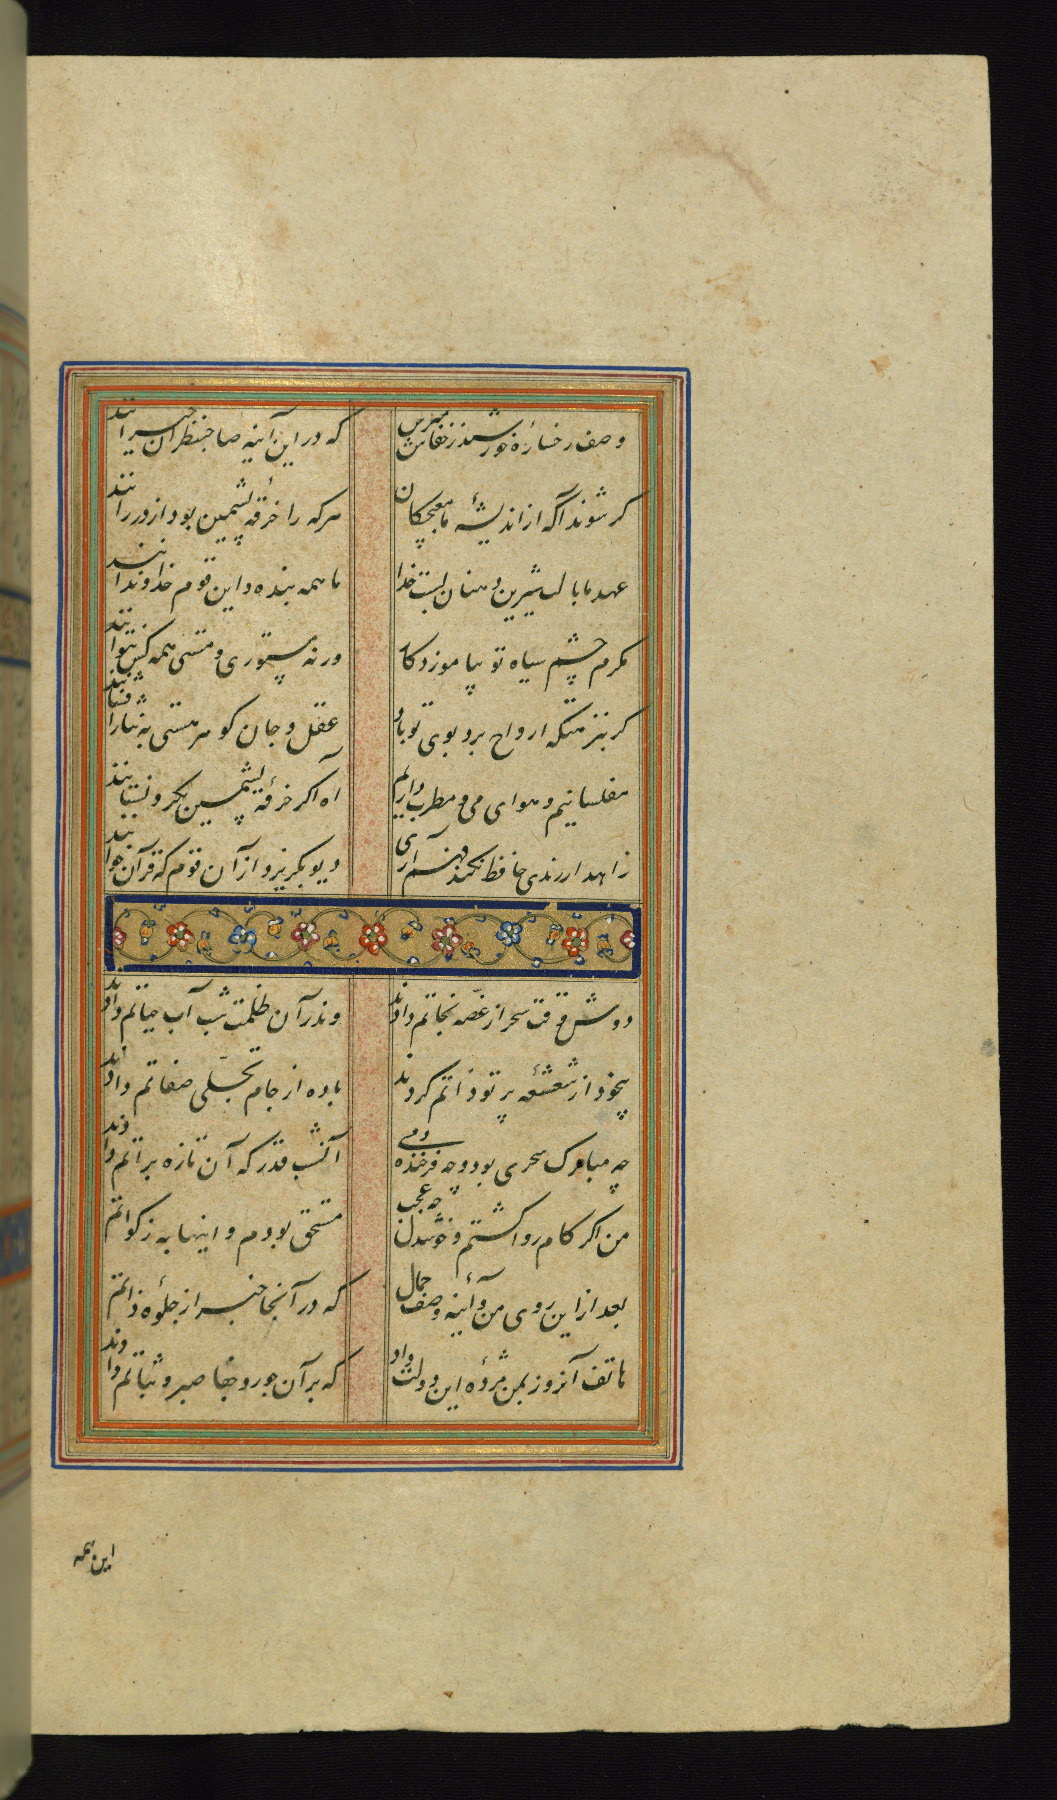 وصف رخساره خورشید ز خفاش مپرس که در این آینه صاحبنظران حیرانند
گر شوند آگه از اندیشهٔ ما مغبچگان هرکه را خرقه پشمین بود از در رانند
عهد ما با لب شیرین دهنان بست خدا ما همه بنده و این قوم خداوندانند
مگرم چشم سیاه تو بیاموزد کار ورنه مستوری و مستی همه کس نتوانند
گر بنزهتگه ارواح برد بوی تو باد عقل و جان گوهر هستی به نثار افشانند
مفلسانیم و هوای می و مطرب داریم آه اگر خرقهٔ پشمین بگرو نستانند
زاهد ار رندی حافظ نکند فهم دیو بگریزد از آن قوم که قرآن خوانند
دوش وقت سحر از غصه نجاتم دادند وندر آن ظلمت شب آب حیاتم دادند
بیخود از شعشعه پرتو ذاتم کردند باده از جام تجلی صفاتم دادند
چه مبارک سحری بود و چه فرخنده دمی آنشب قدر که آن تازه براتم دادند
من اگر کامروا گشتم و خوشدل چه عجب مستحق بودم و اینها به زکواتم
بعد از این روی من و آینه وصف جمال که در آنجا خبر از جلوه ذاتم
هاتف آنروز بمن مژده این دولت داد که بر آن جور و جفا صبر و ثباتم دادند
این همه